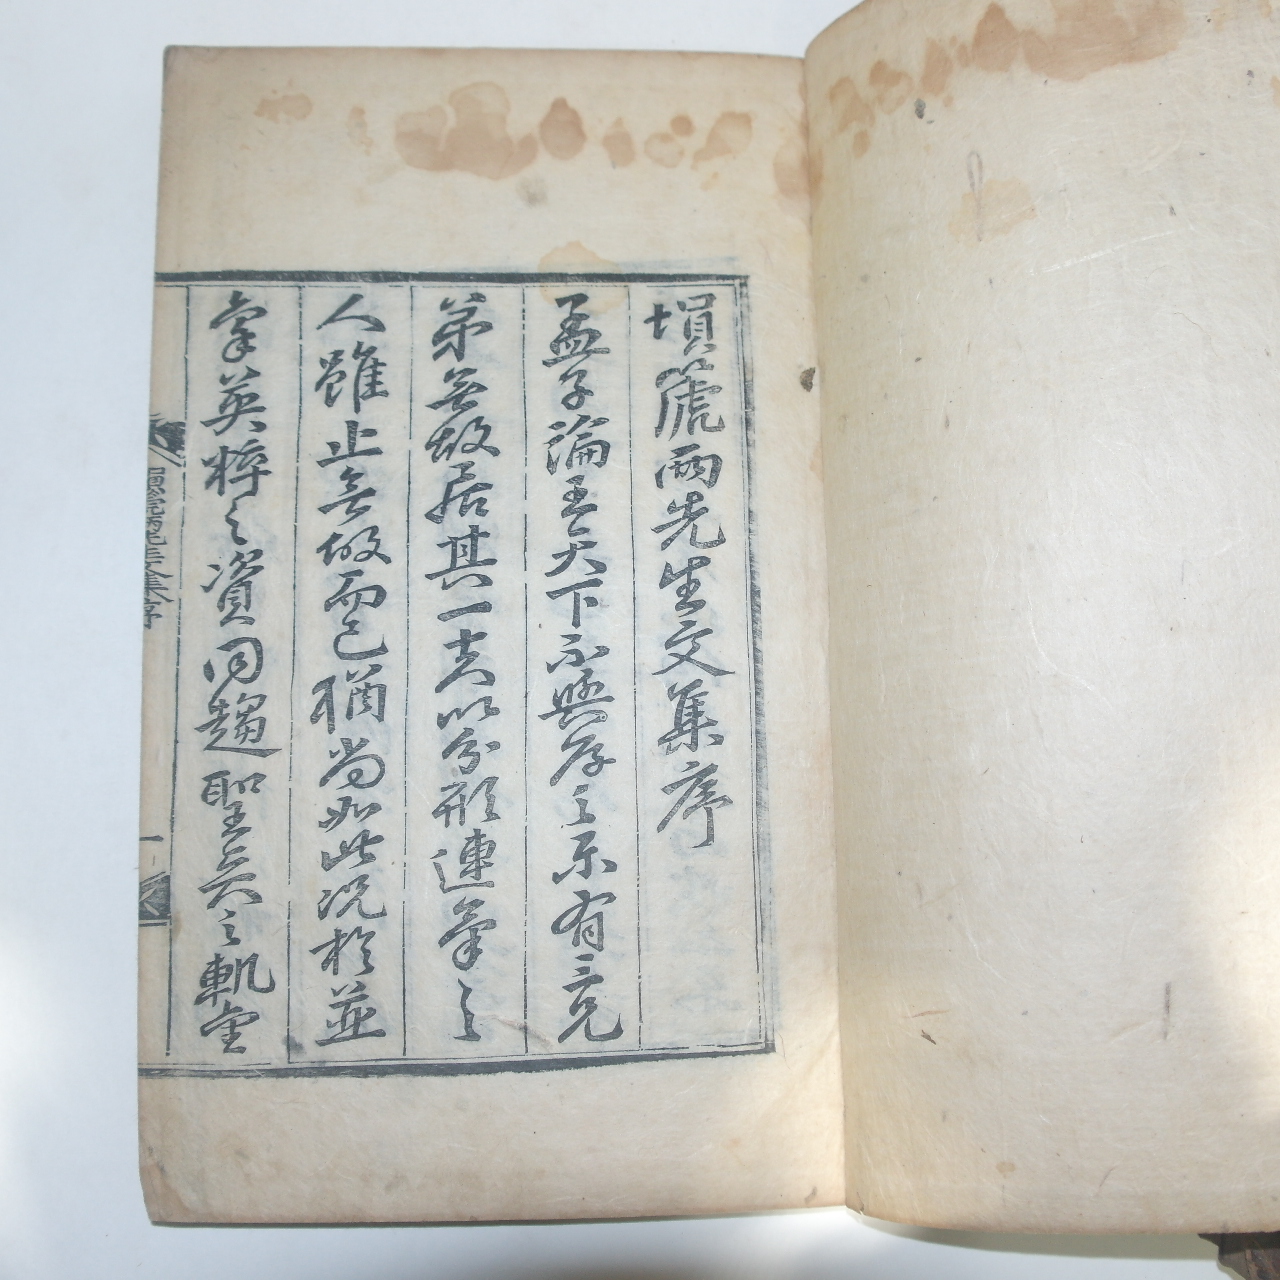 塤篪兩先生文集序
孟子論王天下不與存之樂有三兄
弟無故居其一夫以分形連氣之
人雖止無故而已猶尚如此況於並
稟英粹之資同趨聖賢之軌堂
塤篪兩先生文集序
一